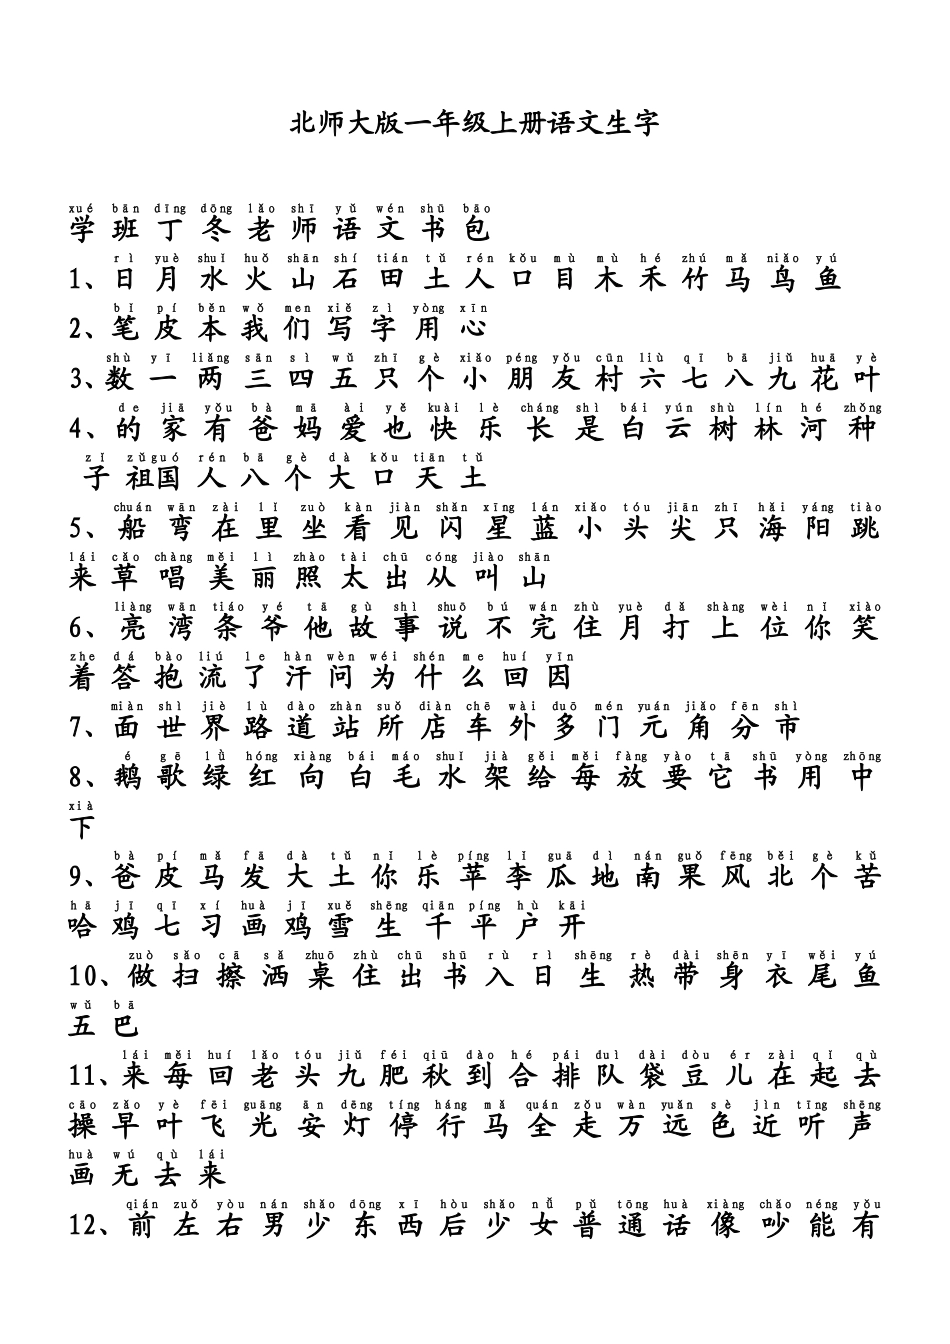 北师大版一年级上册语文生字
xué bān dīng dōng lǎo shī yǔ wén shū bāo
学 班 丁 冬 老 师 语 文 书 包
rì yuè shuǐ huǒ shān shí tián tǔ rén kǒu mù mù hé zhú mǎ niǎo yú
1、日 月 水 火 山 石 田 土 人 口 目 木 禾 竹 马 鸟 鱼
bǐ pí běn wǒ men xiě zì yòng xīn
2、笔 皮 本 我 们 写 字 用 心
shù yī liǎng sān sì wǔ zhī gè xiǎo péng yǒu cūn liù qī bā jiǔ huā yè
3、数 一 两 三 四 五 只 个 小 朋 友 村 六 七 八 九 花 叶
de jiā yǒu bà mā ài yě kuài lè cháng shì bái yún shù lín hé zhǒng
4、的 家 有 爸 妈 爱 也 快 乐 长 是 白 云 树 林 河 种
zǐ zǔguó rén bā gè dà kǒu tiān tǔ
子 祖国 人 八 个 大 口 天 土
chuán wān zài lǐ zuò kàn jiàn shǎn xīng lán xiǎo tóu jiān zhī hǎi yáng tiào
5、船 弯 在 里 坐 看 见 闪 星 蓝 小 头 尖 只 海 阳 跳
lái cǎo chàng měi lì zhào tài chū cóng jiào shān
来 草 唱 美 丽 照 太 出 从 叫 山
liàng wān tiáo yé tā gù shì shuō bú wán zhù yuè dǎ shàng wèi nǐ xiào
6、亮 湾 条 爷 他 故 事 说 不 完 住 月 打 上 位 你 笑
zhe dá bào liú le hàn wèn wéi shén me huí yīn
着 答 抱 流 了 汗 问 为 什 么 回 因
miàn shì jiè lù dào zhàn suǒ diàn chē wài duō mén yuán jiǎo fēn shì
7、面 世 界 路 道 站 所 店 车 外 多 门 元 角 分 市
é gē lǜ hóng xiàng bái máo shuǐ jià gěi měi fàng yào tā shū yòng zhōng
8、鹅 歌 绿 红 向 白 毛 水 架 给 每 放 要 它 书 用 中
xià
下
bà pí mǎ fā dà tǔ nǐ lè píng lǐ guā dì nán guǒ fēng běi gè kǔ
9、爸 皮 马 发 大 土 你 乐 苹 李 瓜 地 南 果 风 北 个 苦
hā jī qī xí huà jī xuě shēng qiān píng hù kāi
哈 鸡 七 习 画 鸡 雪 生 千 平 户 开
zuò sǎo cā sǎ zhuō zhù chū shū rù rì shēng rè dài shēn yī wěi yú
10、做 扫 擦 洒 桌 住 出 书 入 日 生 热 带 身 衣 尾 鱼
wǔ bā
五 巴
lái měi huí lǎo tóu jiǔ féi qiū dào hé pái duì dài dòu ér zài qǐ qù
11、来 每 回 老 头 九 肥 秋 到 合 排 队 袋 豆 儿 在 起 去
cāo zǎo yè fēi guāng ān dēng tíng háng mǎ quán zǒu wàn yuǎn sè jìn tīng shēng
操 早 叶 飞 光 安 灯 停 行 马 全 走 万 远 色 近 听 声
huà wú qù lái
画 无 去 来
qián zuǒ yòu nán shǎo dōng xī hòu shǎo nǚ pǔ tōng huà xiàng chǎo néng yǒu
12、前 左 右 男 少 东 西 后 少 女 普 通 话 像 吵 能 有